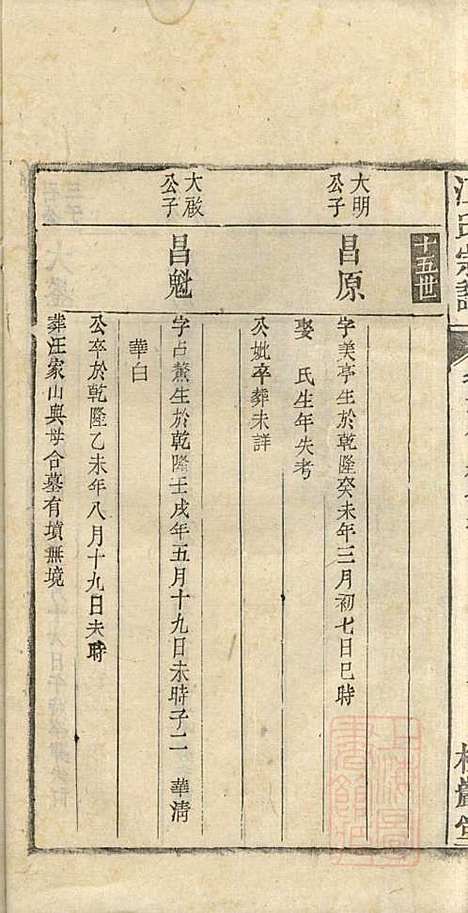 江氏宗譜
十五世
大明
公子
昌原
字美亭生於乾隆癸未年三月初七日巳時
娶 氏生年失考
公妣卒葬未詳
大啟
公子
昌魁
字占鰲生於乾隆壬戌年五月十九日未時子二 華清
華白
公卒於乾隆乙未年八月十九日未時
葬汪家山與母合墓有墳無境
上海圖書館藏